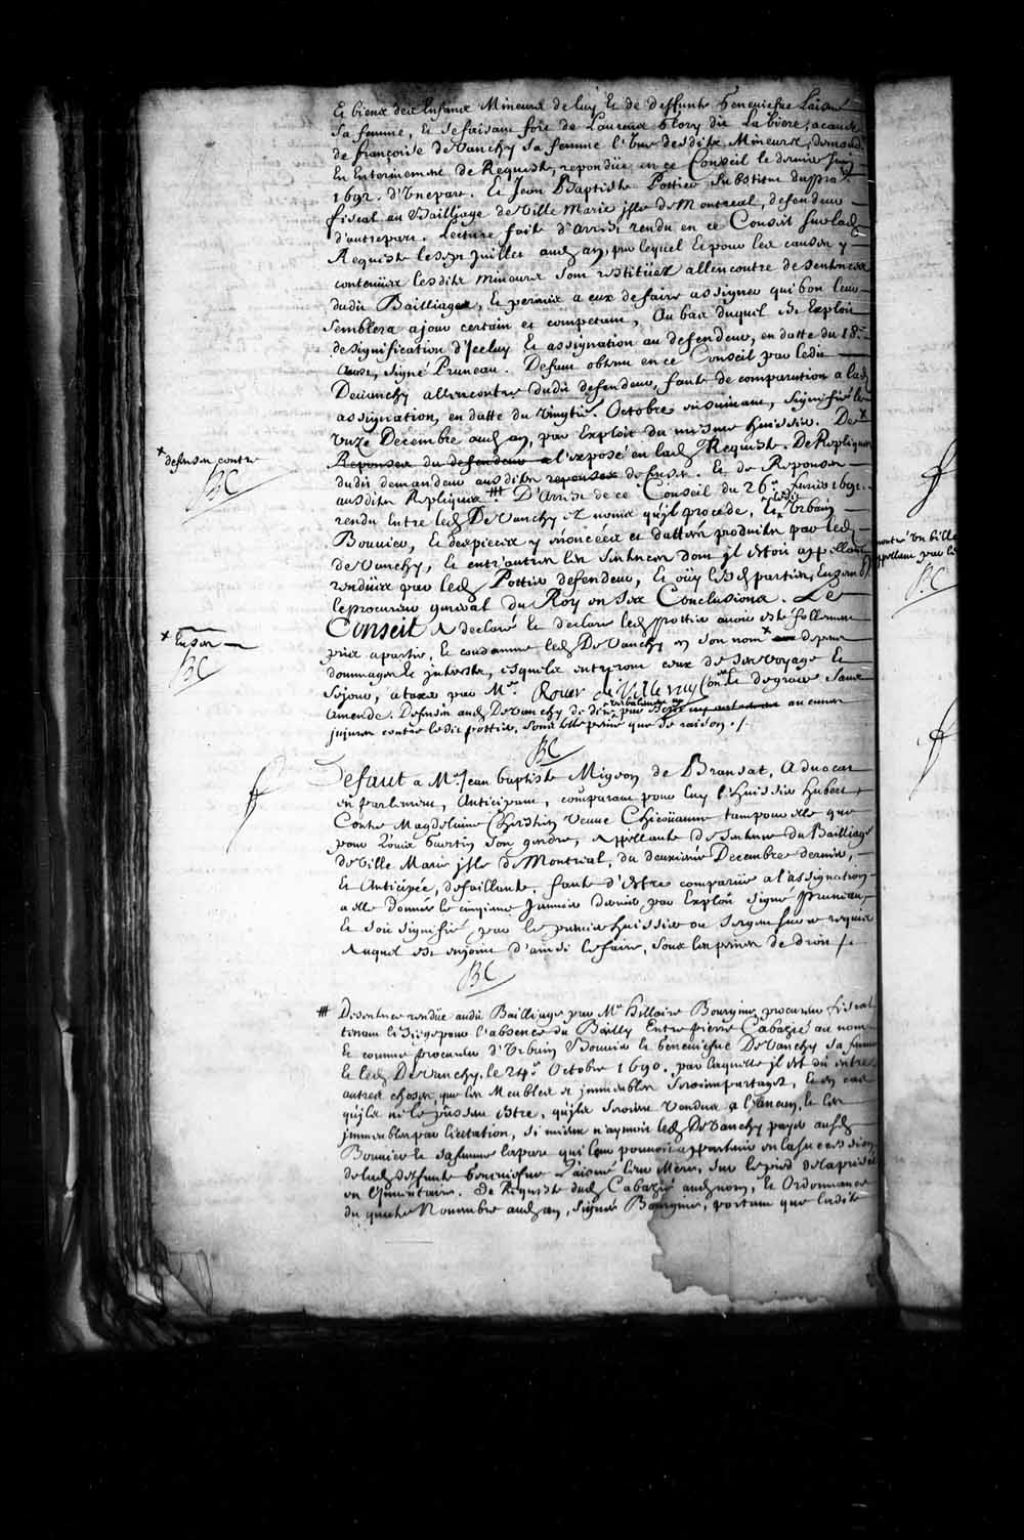 Et biens des Enfans Mineurs de luy et de deffunte Geneviefve Laisné
sa femme, et se faisant fort de Laurens Glory dit La biere, a cause
de françoise de Vanchy sa femme l'Une desdits Mineurs, demand.
En Enterinement de Requeste, repondüe en ce Conseil le dernier Juin
1692. d'Une part. Et Jean Baptiste Pottier Substitut du pro.
fiscal au Bailliage de Ville Marie jsle de Montreal, defendeur
d'autre part. Lecture faite d'arrest rendu en ce Conseil sur lad.
Requeste le Juillet aud. an, par lequel et pour les causes y
contenües lesdits mineurs sont restituez allencontre de sentences
dudit Bailliage, et permis a eux de faire assigner qui bon leur
semblera a jour certain et competant, Au bas duquel est Exploit
de signification d'Jceluy et assignation au defendeur, en datte du 18.e
Aoust, signé Pruneau. Defaut obtenu en ce Conseil par ledit
Devanchy allencontre dudit defendeur, faute de comparution a lad.
assignation, en datte du vingtie. Octobre ensuivant, signifié le
Unze Decembre aud. an, par Exploit du mesme huissier. Des
Reponses du defendeur a l'exposé en lad. Requeste. De Repliques
dudit demandeur ausdites reponses defenses. Et de Reponses
ausdites Repliques # D'Arrest de ce Conseil du 26.e fevrier 1691.
rendu Entre led. De Vanchy et noms qu'jl procede, et ledit Urbain
Bouvier, et des pieces y énoncées et dattées produites par led.
de Vanchy, et entr'autres les sentences dont jl estoit appellant
rendües par led. Pottier defendeur, Et oüy lesd. parties, Ensemble
le procureur general du Roy en ses Conclusions. Le
Conseil A declaré et declare led. Pottier avoir esté follement
pris a partie, et condamne led. De Vanchy en son nom × depens
dommages et interests, esquels entreront ceux de son voyage et
sejour, a taxer par M.e Rouer de Villeray Con.er Et de grace sans
amende. Defenses aud. Devanchy de dire verbalement ny par Escrit aucunes
jnjures contre ledit pottier, sous telle peine que de raison ./.
BC
Defaut a M.e Jean baptiste Migeon de Bransat, Advocat
en parlement, Anticipant, comparant pour luy l'huissier hubert
Contre Magdelaine Chrestien veuve Chicoüanne tant pour elle que
pour Louis Guertin son gendre, Appellante de sentence du Bailliage
de Ville Marie jsle de Montreal, du deuxiéme Decembre dernier,
Et Anticipée, defaillante, faute d'Estre comparüe a l'assignation
a elle donnée le cinqiéme Janvier dernier par Exploit signé Pruneau,
Et soit signifié, par le premier huissier ou sergent sur ce requis
Auquel est enjoint d'ainsi le faire, sous les peines de droit ./.
BC
# De sentence rendüe audit Bailliage par M.e hillaire Bourgine procureur fiscal
tenant le siege pour l'absence du Bailly Entre pierre Cabazié au nom
Et comme procureur d'Urbain Bouvier et Geneviefve DeVanchy sa femme
Et led. DeVanchy, le 24.e Octobre 1690. par laquelle jl est dit entre
autres choses, que les Meubles et jmmeubles seroient partagez, Et en cas
qu'jls ne le pussent estre, qu'jls seroient vendus a l'Encan, et les
jmmeubles par licitation, si mieux n'aymoit led. DeVanchy payer ausd.
Bouvier et sa femme les parts qui leur pouvoit appartenir en la succession
de lad. deffunte Geneviefve Laisné leur Mere, sur le pied de la prisée
en l'Jnventaire. De Requeste dud. Cabazié aud. nom, et Ordonnance
du quatre Novembre aud. an, signée Bourgine, portant que ladite
× defenses contre
BC
× En son
BC
BC